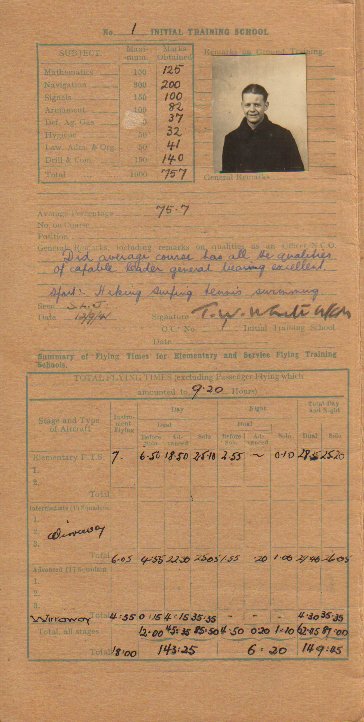 No. 1 INITIAL TRAINING SCHOOL
SUBJECT. Maxi-mum. Marks Obtained
Mathematics 150 125
Navigation 300 200
Signals 150 100
Armament 100 82
Def. Ag. Gas 50 37
Hygiene 50 32
Law, Adm. & Org. 50 41
Drill & Com. 150 140
Total 1000 757
Remarks on Ground Training.
General Remarks
Average Percentage 75.7
No. on Course
Position
General Remarks, including remarks on qualities as an Officer/N.C.O.
Did average course has all the qualities
of capable leader general bearing excellent.
Sport:- Hiking surfing tennis swimming
Date 12/9/41 Signature T. W. White
O.C. No. Initial Training School
Date
Summary of Flying Times for Elementary and Service Flying Training
Schools.
TOTAL FLYING TIMES (excluding Passenger Flying which
amounted to 9.20 Hours)
Stage and Type of Aircraft Instru-ment Flying Day Night Total Day and Night
Dual Dual
Before Solo Ad-vanced Solo Before Solo Ad-vanced Solo Dual Solo
Elementary F.T.S. 7. 6.50 18.50 25.10 2.55 ~ 0.10
1.
2.
Total
Intermediate (I) Squadron
1.
2. Wirraway
3.
Total 6.05 4.55 22.30 25.05 1.55 .20 1.00
Advanced (T) Squadron
1.
2.
3.
Wirraway Total 4.55 0.15 4.15 35.35 - - - 4.30 35.35
Total, all stages 12.00 45.35 85.50 4.50 0.20 1.10 62.05 87.00
Total 18.00 143:25 6:20 149:45